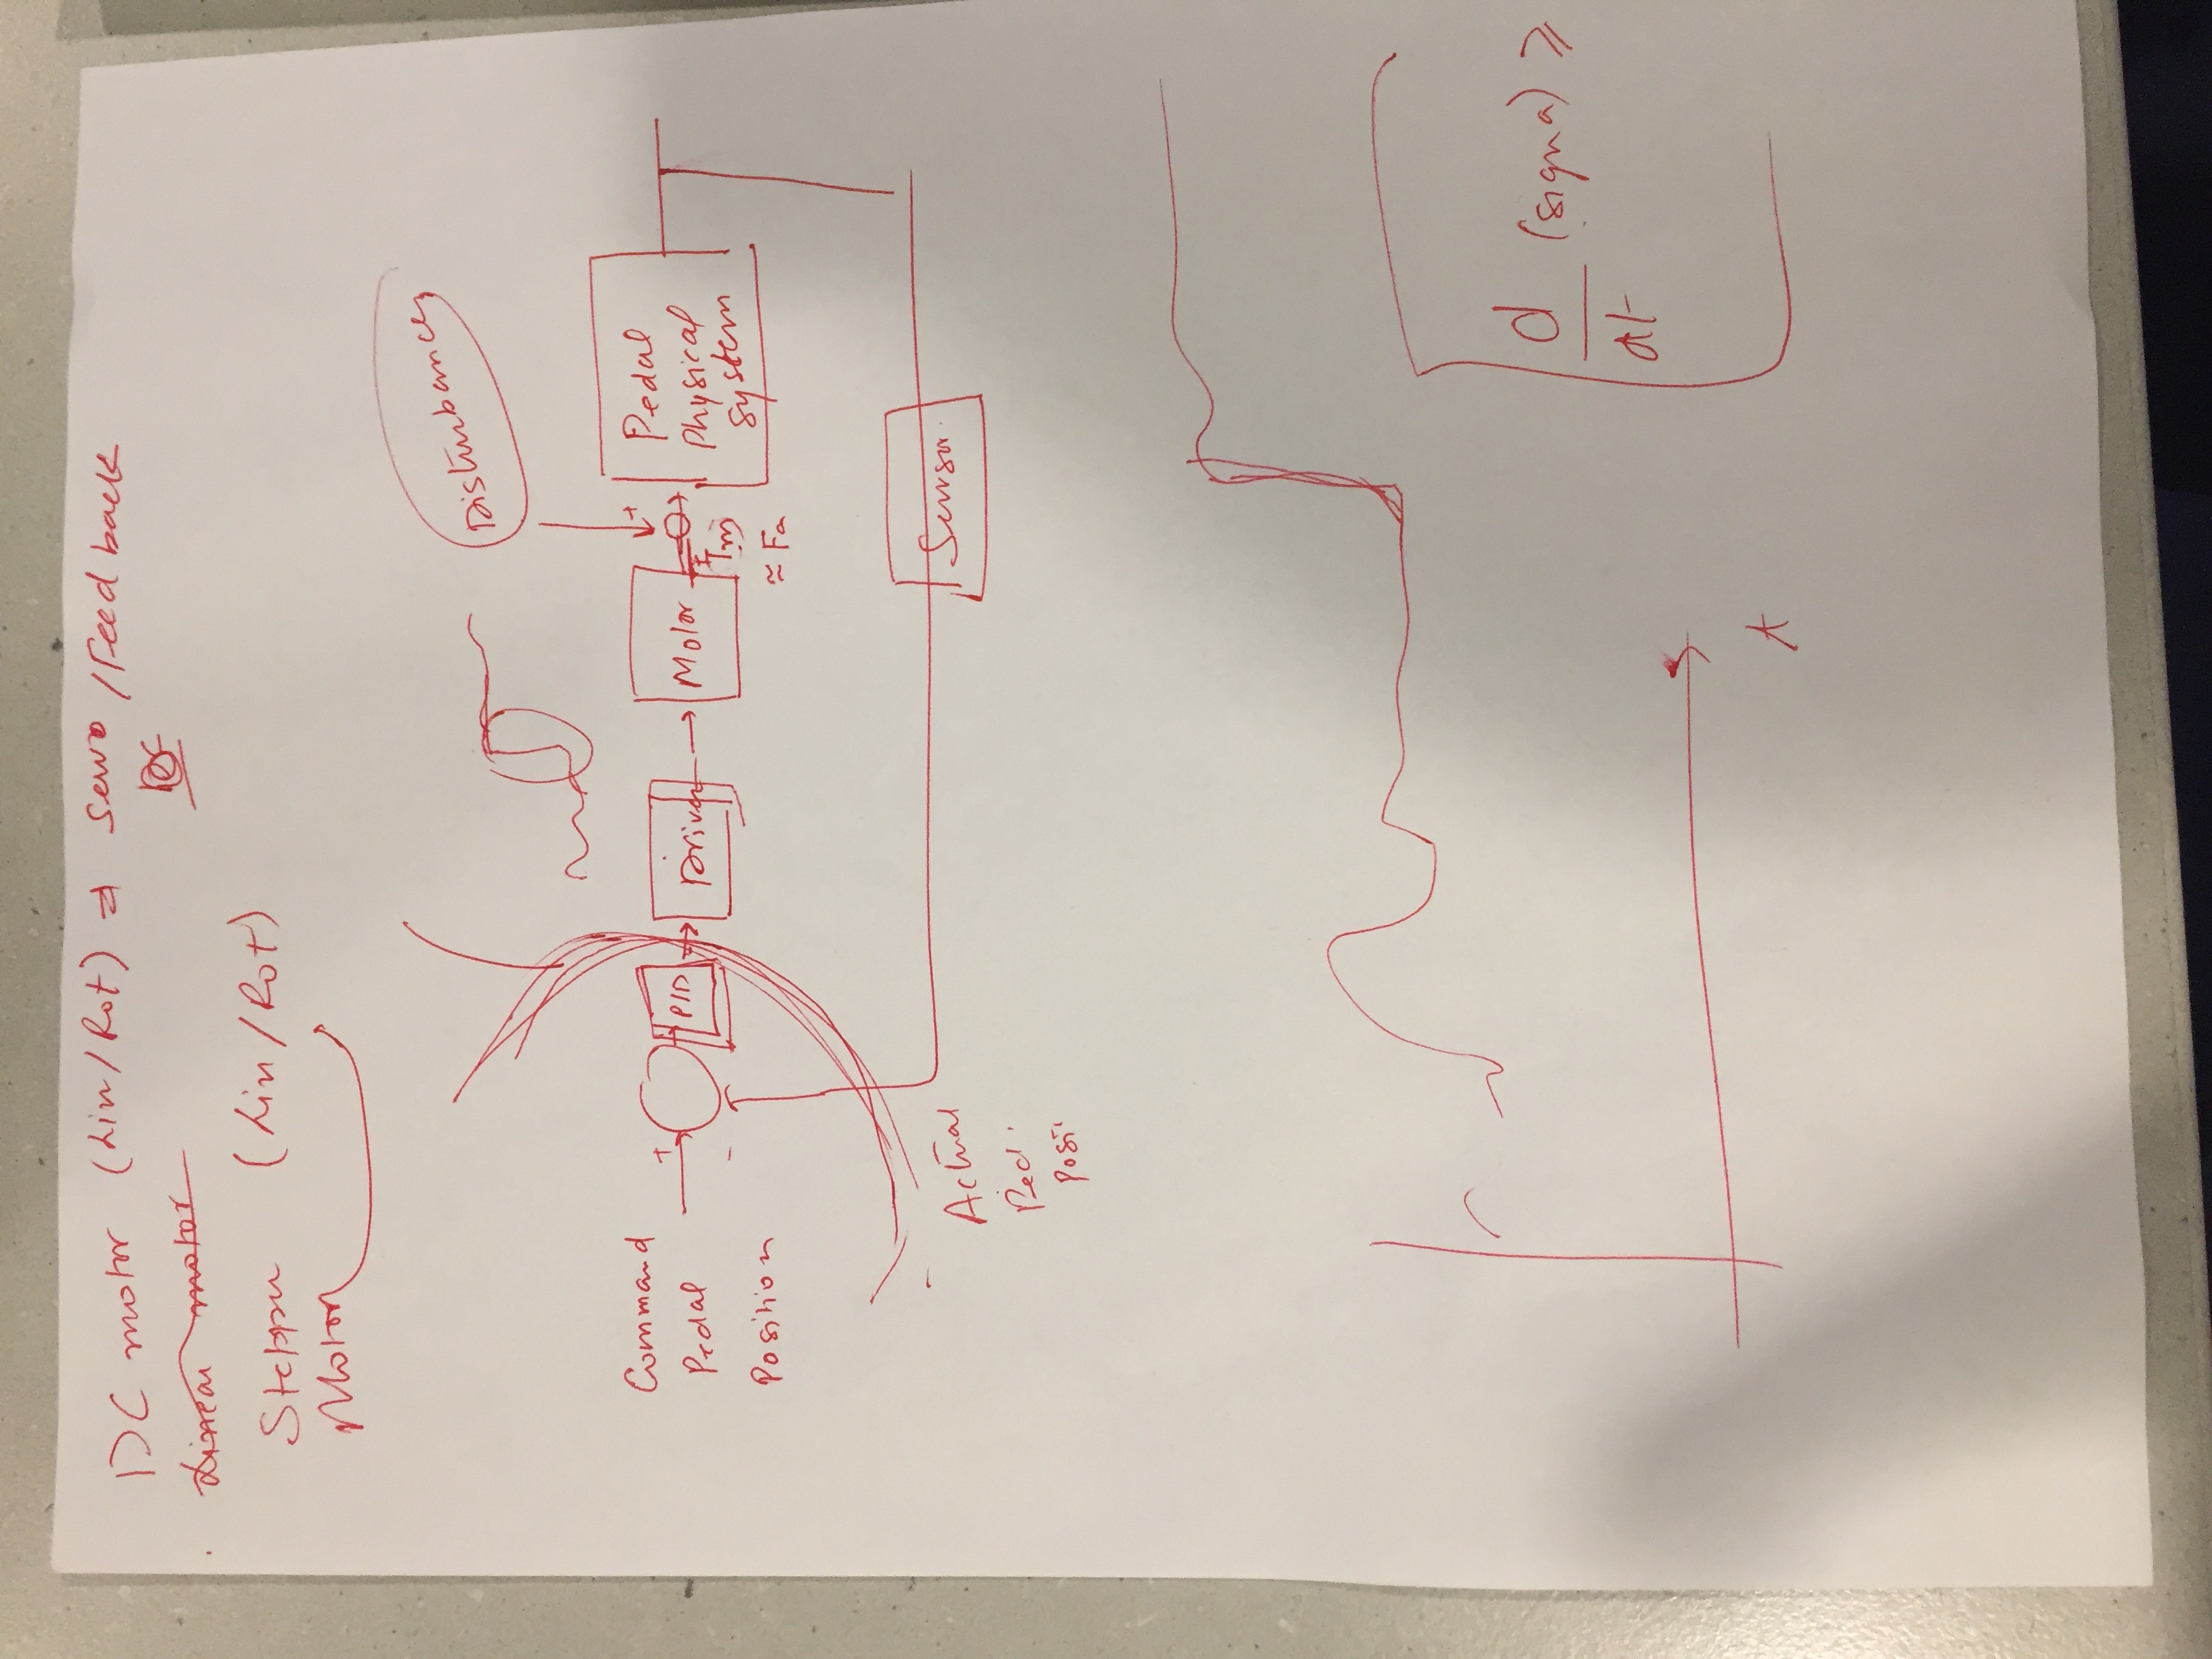 DC motor (Lin/Rot) ⇒ Servo / Feedback
Linear motor
Stepper (Lin/Rot)
Motor
Disturbance
Command
Pedal
Position
+
-
PID
Driver
Motor
Tm
≈ Fa
+
+
Pedal
Physical
System
Sensor
-
Actual
Ped.
Posi
d/dt (signa) ≥
t